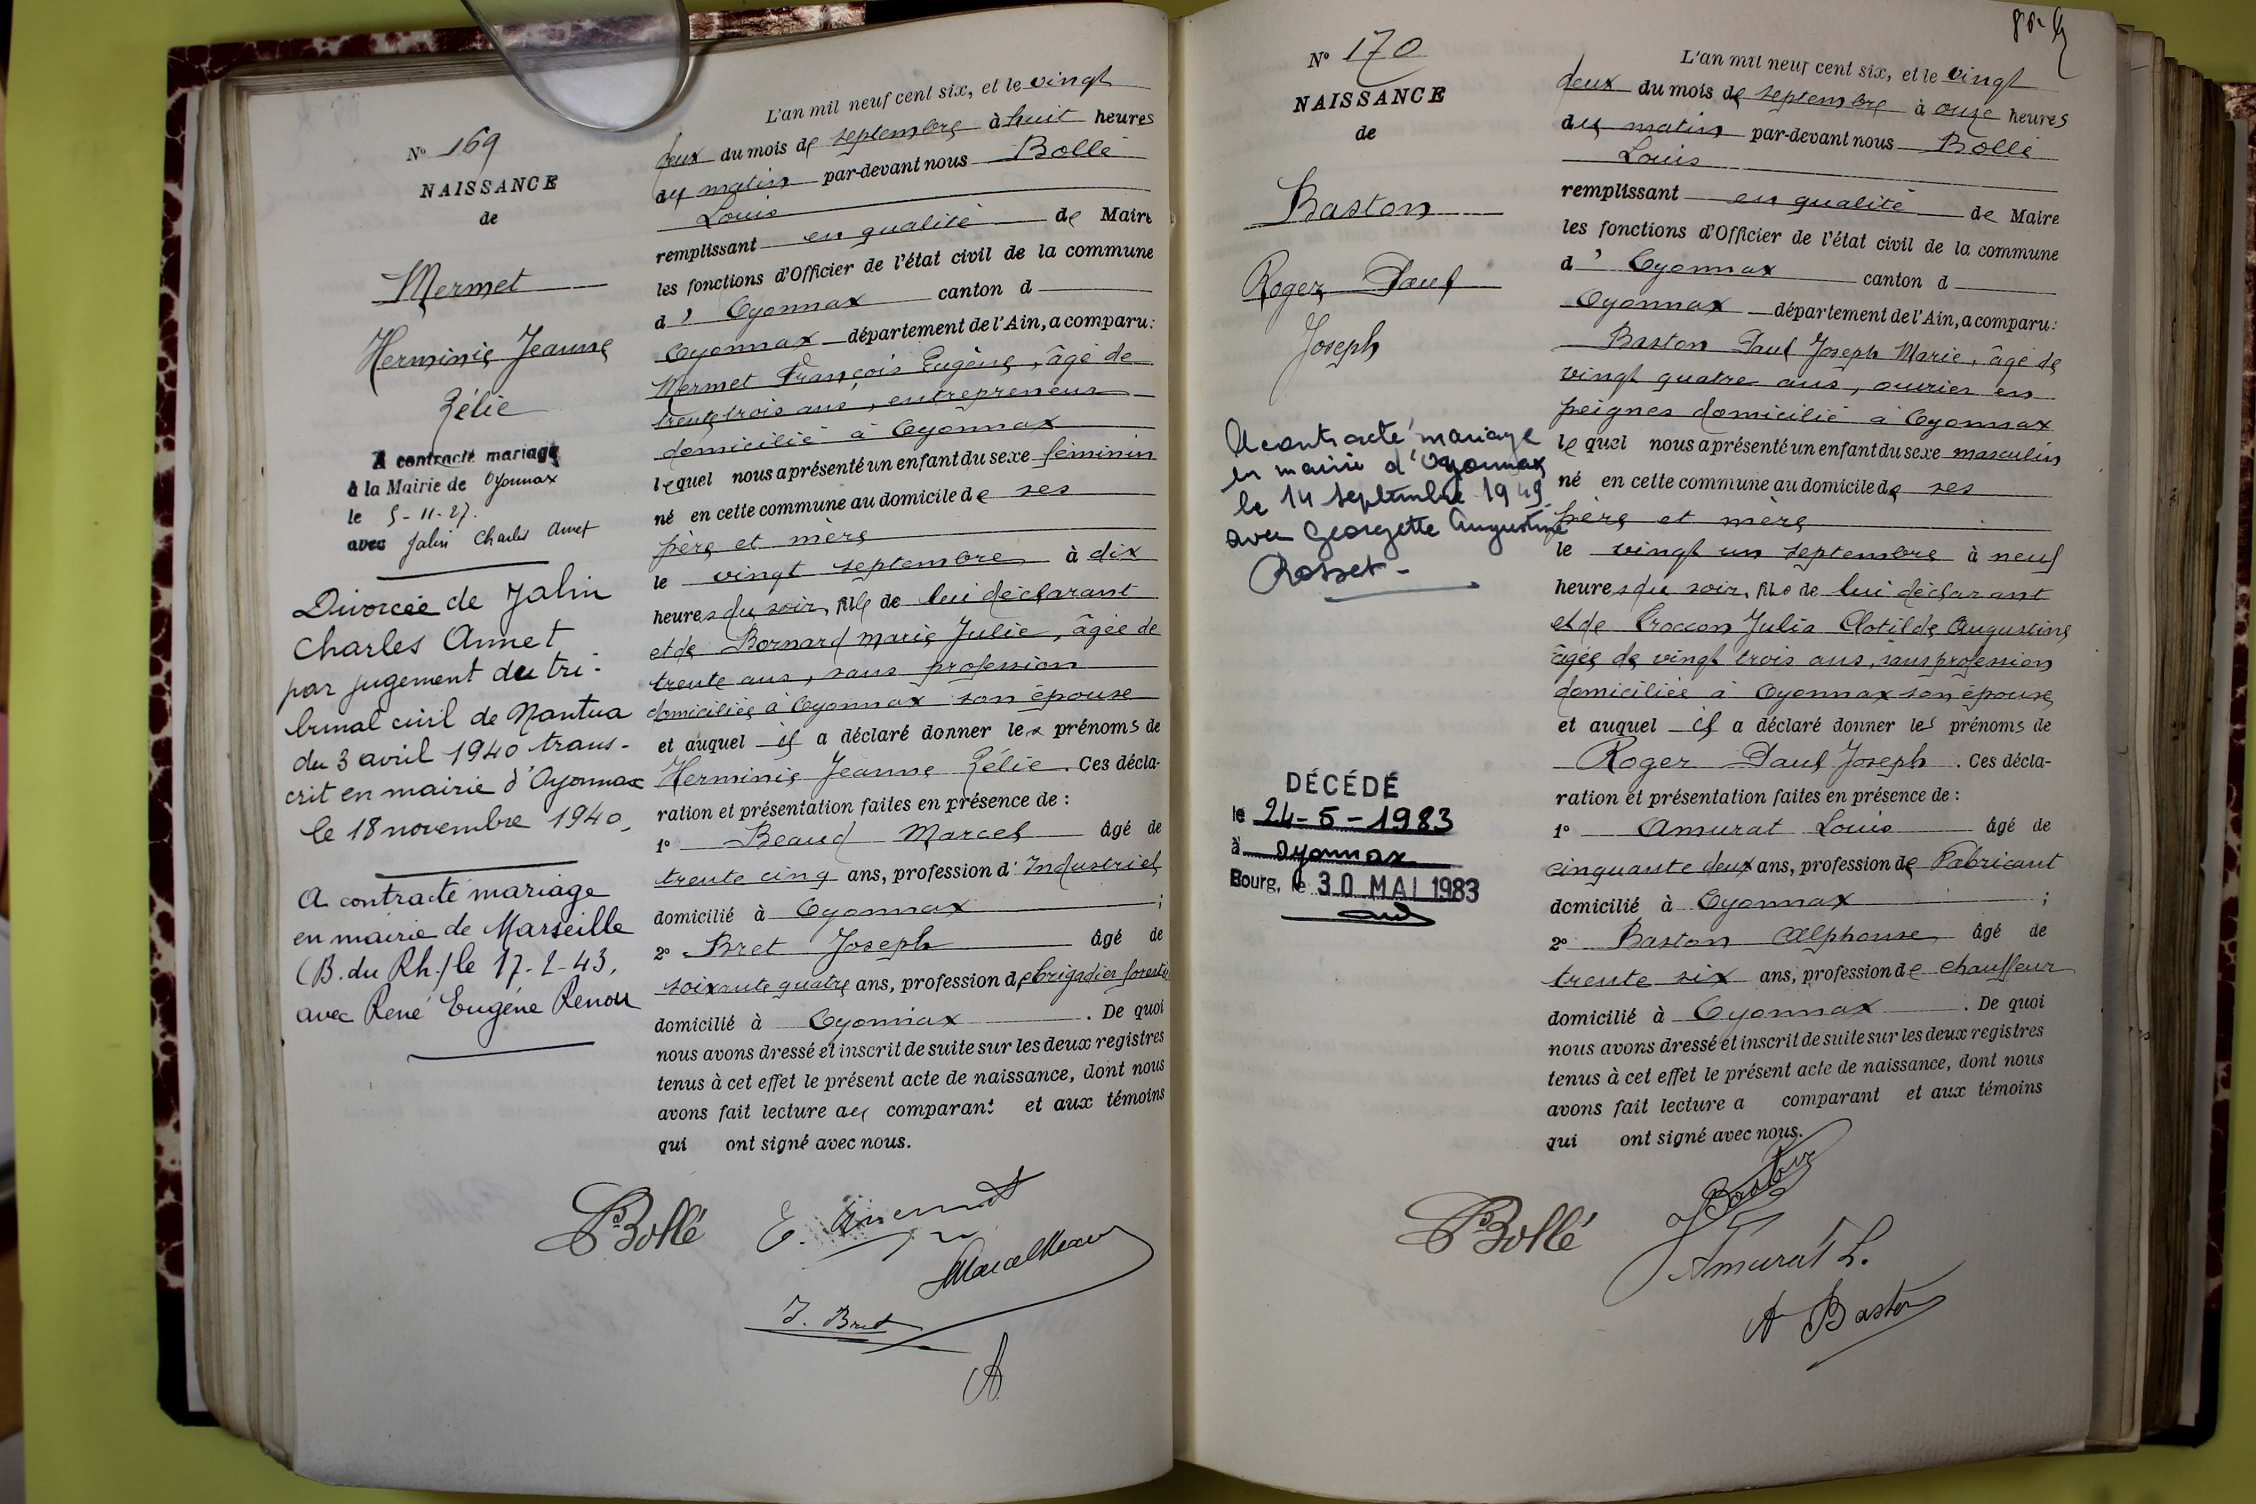 N° 169
NAISSANCE
de
Mermet
Herminie Jeanne
Zélie
A contracté mariage
à la Mairie de Oyonnax
le 5-11-27.
avec Jalin Charles Amet
Divorcée de Jalin
Charles Annet
par jugement du tri-
bunal civil de Nantua
du 3 avril 1940 trans-
crit en mairie d'Oyonnax
le 18 novembre 1940.
A contracté mariage
en mairie de Marseille
(B. du Rh.) le 17-2-43,
avec René Eugène Renou
L'an mil neuf cent six, et le vingt
deux du mois de septembre à huit heures
du matin par-devant nous Bollé
Louis
remplissant en qualité de Maire
les fonctions d'Officier de l'état civil de la commune
d' Oyonnax canton d
Oyonnax département de l'Ain, a comparu:
Mermet François Eugène, âgé de
trente trois ans, entrepreneur
domicilié à Oyonnax
lequel nous a présenté un enfant du sexe féminin
né en cette commune au domicile de ses
père et mère
le vingt septembre à dix
heures du soir, fille de lui déclarant
et de Bornard Marie Julie, âgée de
trente ans, sans profession
domiciliée à Oyonnax son épouse
et auquel il a déclaré donner les prénoms de
Herminie Jeanne Zélie. Ces décla-
ration et présentation faites en présence de :
1° Beaud Marcel âgé de
trente cinq ans, profession d' Industriel
domicilié à Oyonnax ;
2° Bret Joseph âgé de
soixante quatre ans, profession de brigadier forestier
domicilié à Oyonnax. De quoi
nous avons dressé et inscrit de suite sur les deux registres
tenus à cet effet le présent acte de naissance, dont nous
avons fait lecture au comparant et aux témoins
qui ont signé avec nous.
Bollé
J. Bret
N° 170
NAISSANCE
de
Baston
Roger Paul
Joseph
A contracté mariage
en mairie d'Oyonnax
le 14 septembre 1949
avec Georgette Augustine
Rosset-
DÉCÉDÉ
le 24-5-1983
à Oyonnax
Bourg, le 30 MAI 1983
L'an mil neuf cent six, et le vingt
deux du mois de septembre à onze heures
du matin par-devant nous Bollé
Louis
remplissant en qualité de Maire
les fonctions d'Officier de l'état civil de la commune
d' Oyonnax canton d
Oyonnax département de l'Ain, a comparu:
Baston Paul Joseph Marie, âgé de
vingt quatre ans, ouvrier en
peignes domicilié à Oyonnax
lequel nous a présenté un enfant du sexe masculin
né en cette commune au domicile de ses
père et mère
le vingt un septembre à neuf
heures du soir, fils de lui déclarant
et de Croccon Julia Clotilde Augustine
âgée de vingt trois ans, sans profession
domiciliée à Oyonnax son épouse
et auquel il a déclaré donner les prénoms de
Roger Paul Joseph. Ces décla-
ration et présentation faites en présence de :
1° Amurat Louis âgé de
cinquante deux ans, profession de Fabricant
domicilié à Oyonnax ;
2° Baston Alphonse âgé de
trente six ans, profession de chauffeur
domicilié à Oyonnax. De quoi
nous avons dressé et inscrit de suite sur les deux registres
tenus à cet effet le présent acte de naissance, dont nous
avons fait lecture a comparant et aux témoins
qui ont signé avec nous.
Bollé
Amurat L.
A Baston